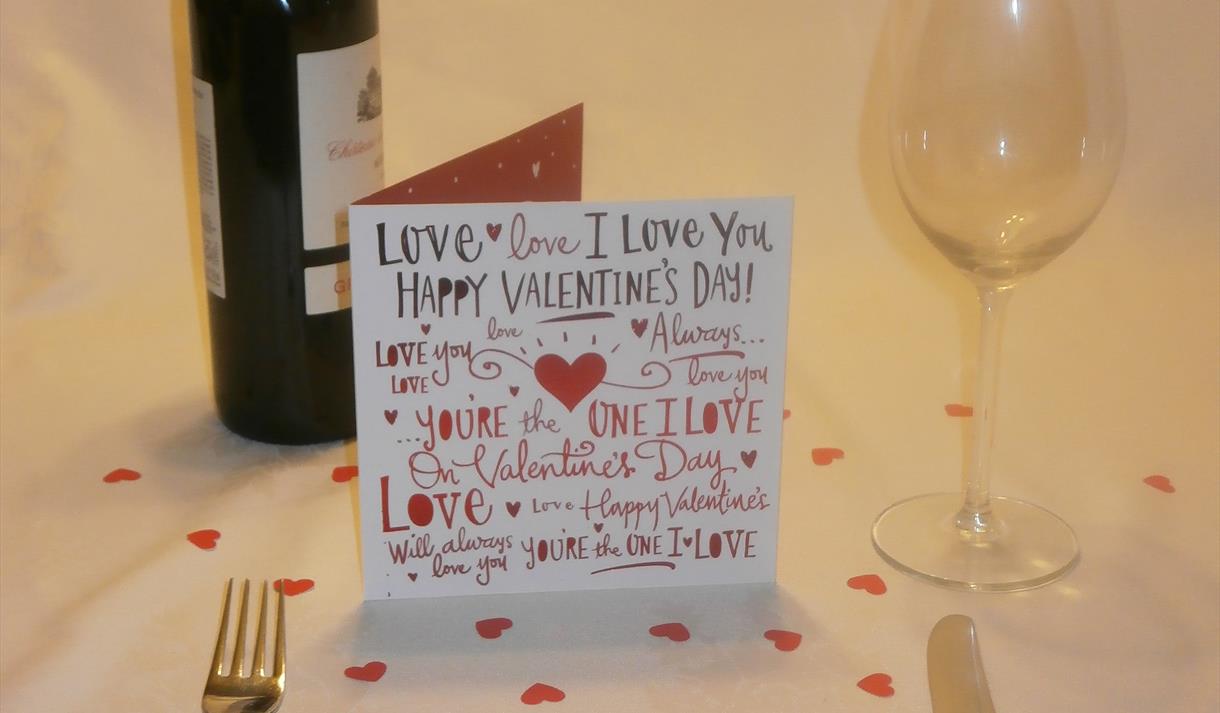 Château
LOVE love I LOVE YOU
HAPPY VALENTINE'S DAY!
love Always...
LOVE you
LOVE love you
...YOU'RE the ONE I LOVE
On Valentine's Day
LOVE Love Happy Valentine's
Will always YOU'RE the ONE I LOVE
love you